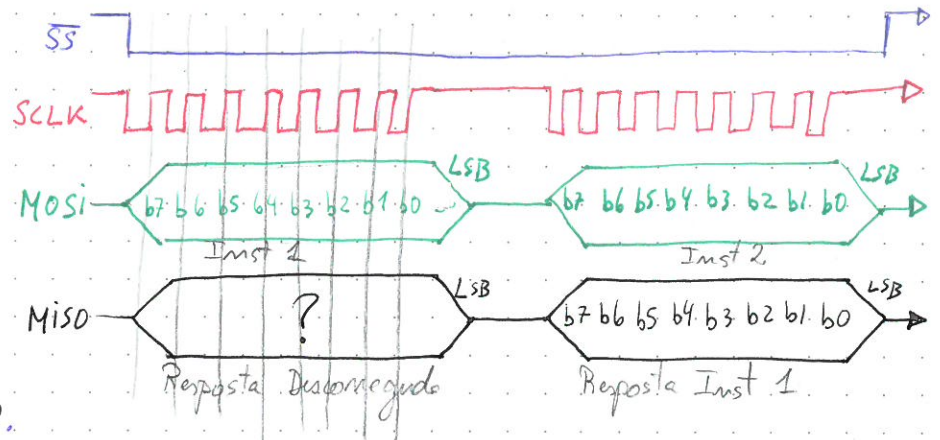 SS
SCLK
MOSi
LSB
b7 b6 b5 b4 b3 b2 b1 b0
Inst 1
LSB
b7 b6 b5 b4 b3 b2 b1 b0
Inst 2
MiSO
LSB
?
Resposta Desconeguda
LSB
b7 b6 b5 b4 b3 b2 b1 b0
Resposta Inst 1